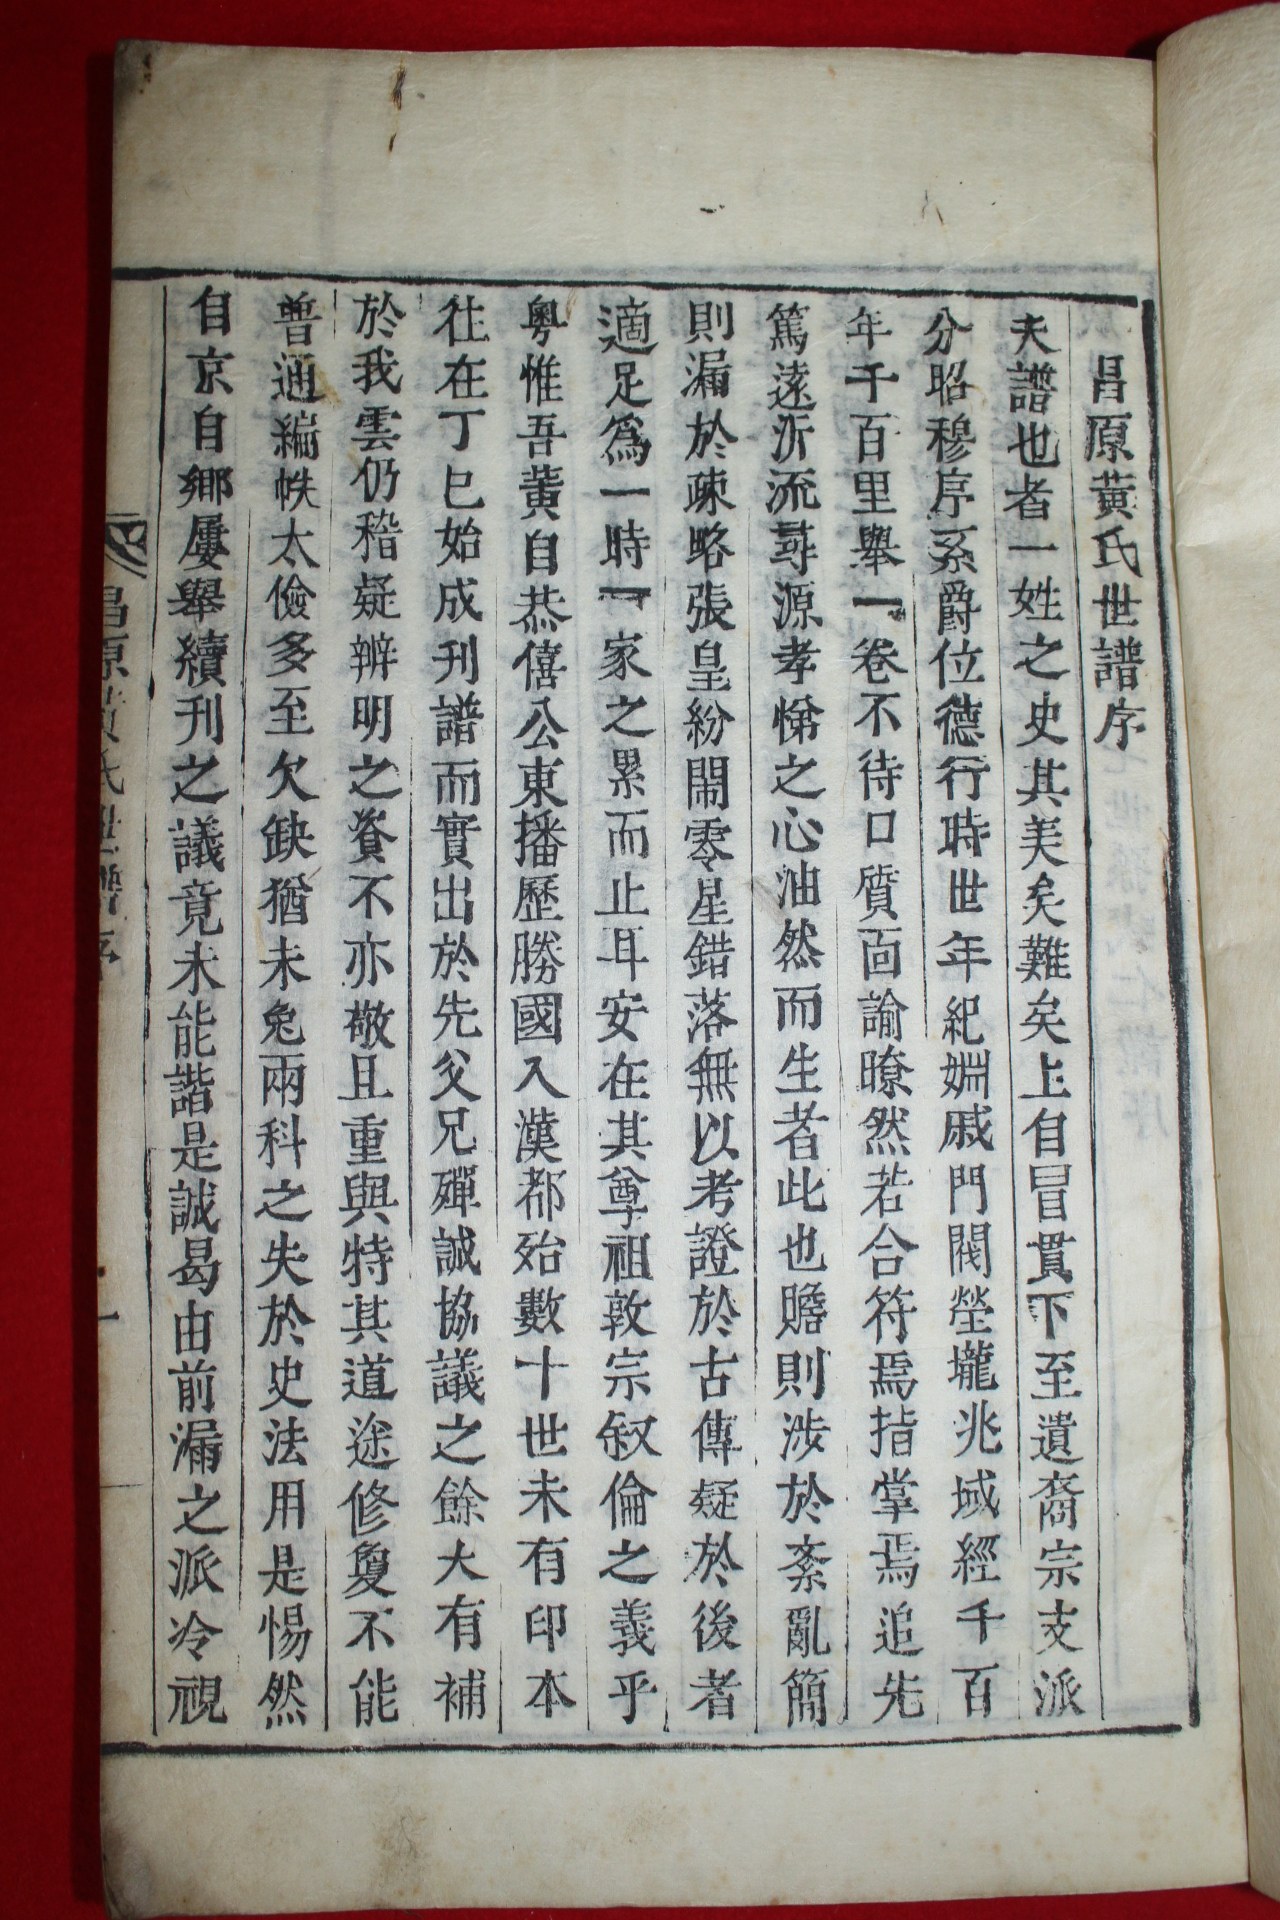 昌原黃氏世譜序
夫譜也者一姓之史其美矣難矣上自冒貫下至遺裔宗支派
分昭穆序系爵位德行時世年紀婣戚門閥塋壠兆域經千百
年千百里舉一卷不待口質面諭瞭然若合符焉指掌焉追先
篤遠沂流尋源孝悌之心油然而生者此也贍則涉於紊亂簡
則漏於疎略張皇紛鬧零星錯落無以考證於古傳疑於後者
適足爲一時一家之累而止耳安在其尊祖敦宗叙倫之義乎
粤惟吾黃自恭僖公東播歷勝國入漢都殆數十世未有印本
徃在丁巳始成刊譜而實出於先父兄殫誠協議之餘大有補
於我雲仍稽疑辨明之資不亦敬且重與特其道途修敻不能
普通編帙太儉多至欠缺猶未免兩科之失於史法用是惕然
自京自鄉屢舉續刊之議竟未能諧是誠曷由前漏之派冷視
昌原黃氏世譜序
一